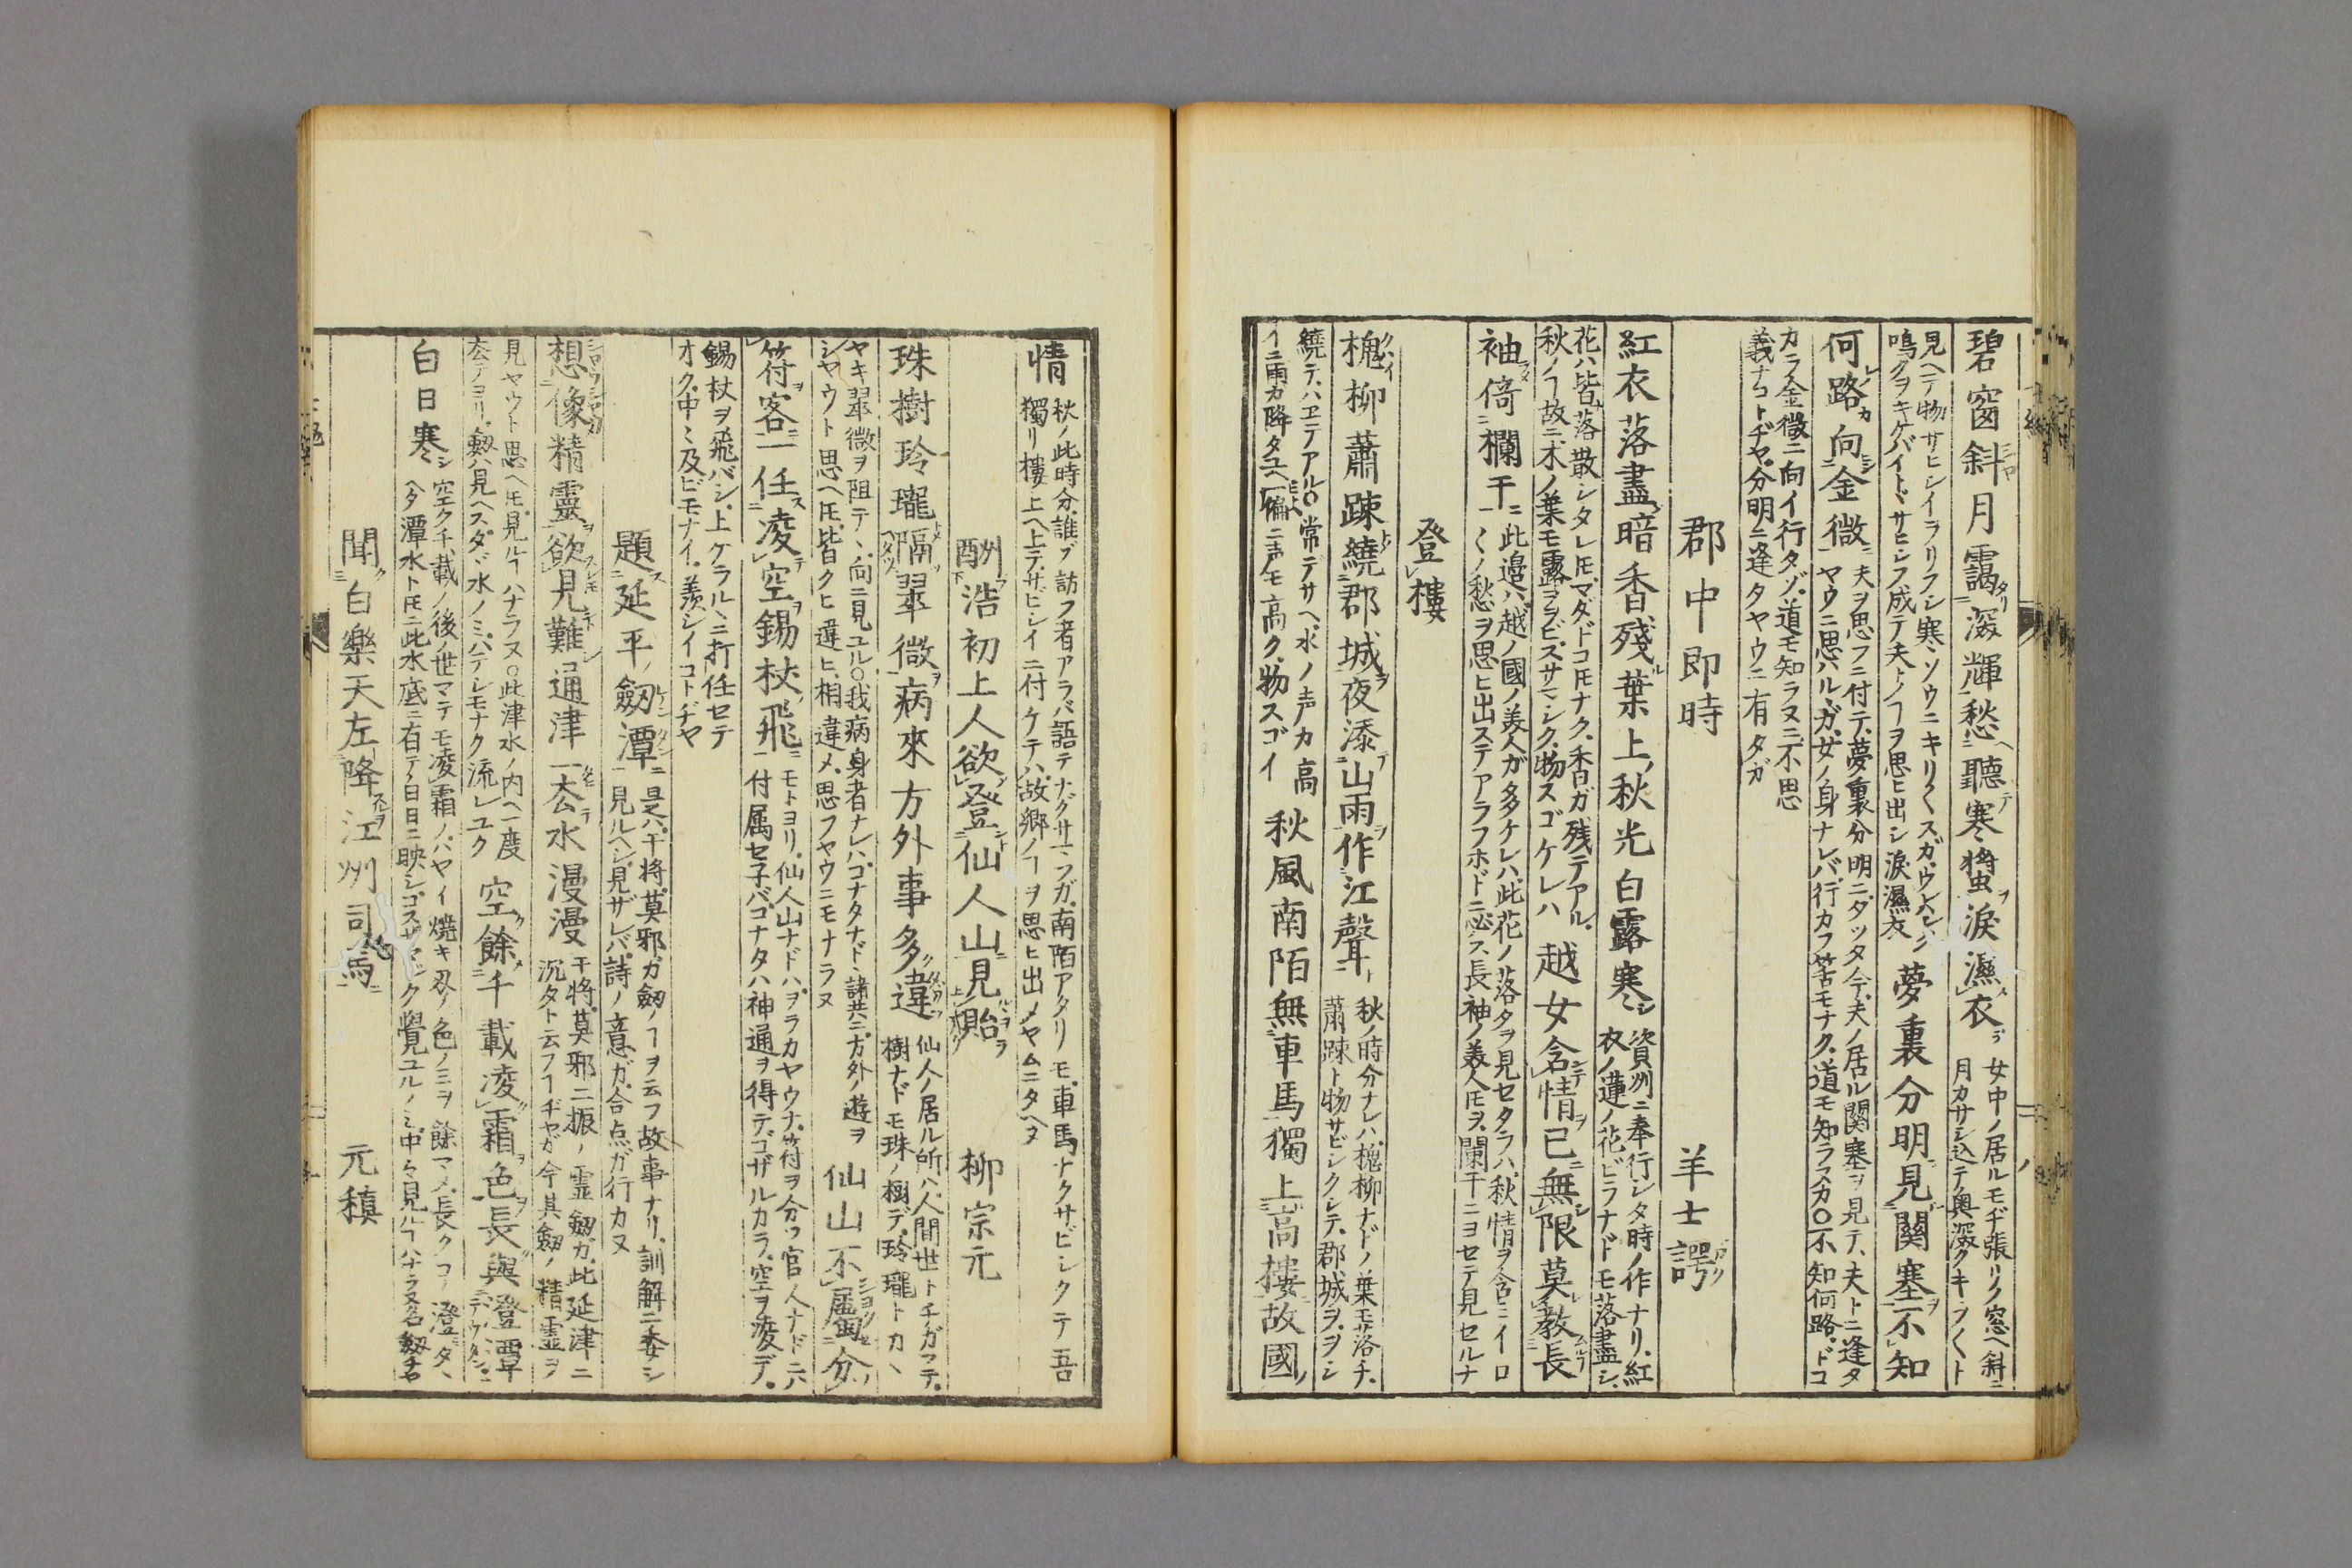 碧窗斜月靄深輝愁聽寒螿淚濕衣
女中ノ居ルモヂ張リノ窓ヘ斜ニ
月カサシ込テ奥深クキラ〱ト
見ヘテ物サヒシイ
鳴クヲキケバイトヽサヒシフ成テ夫トノヿヲ思ヒ出シ淚濕衣
夢裏分明見關塞不知
何路向金微
夫ヲ思フニ付テ夢ノ裏分明ニタツタ今夫ノ居ル関塞ヲ見テ夫トニ逢タ
ヤウニ思ハルヽガ女ノ身ナレバ行カフ筈モナク道モ知ラヌカ〇不知何路ドコ
カラ金微ニ向イ行タゾ道モ知ラヌニ不思
義ナコトヂヤ分明ニ逢タヤウニ有タガ
郡中即時
羊士諤
紅衣落盡暗香殘葉上秋光白露寒
資州ニ奉行シタ時ノ作ナリ紅
衣ノ蓮ノ花ビラナドモ落盡シ
花ハ皆落散シタレ𪜈マダドコ𪜈ナク香ガ残テアル
秋ノヿ故ニ木ノ葉モ露ヲヲビスサマシク物スゴケレハ
越女含情已無限莫教長
袖倚欄干
此邉ハ越ノ國ノ美人ガ多ケレハ此花ノ落タヲ見セタラハ秋情ヲ含ミイロ
〱ノ愁ヲ思ヒ出ステアラフホドニ必ス長袖ノ美人𪜈ヲ闌干ニヨセテ見セルナ
登樓
槐柳蕭踈繞郡城夜添山雨作江聲
秋ノ時分ナレハ槐柳ナドノ葉モ落チ
蕭踈ト物サビシクシテ郡城ヲヲシ
繞テハヱテアル〇常デサヘ水ノ声カ高
イニ雨カ降タユヘ一偏ニ声モ高ク物スゴイ
秋風南陌無車馬獨上高樓故國
情
秋ノ此時分誰ゾ訪フ者アラバ語テナグサマフガ南陌アタリモ車馬ナクサビシクテ吾
獨リ樓上ヘ上テサビシイニ付ケテハ故郷ノヿヲ思ヒ出メヤムニタヘヌ
酬浩初上人欲登仙人山見貽
柳宗元
珠樹玲瓏隔翠微病來方外事多違
仙人ノ居ル所ハ人間世トチガフテ
樹ナドモ珠ノ樹デ玲瓏トカヽ
ヤキ翠微ヲ阻テヽ向ニ見ユル〇我病身者ナレハコナタナド諸共ニ方外ノ遊ヲ
シヤウト思ヘ𪜈皆クヒ違ヒ相違メ思フヤウニモナラヌ
仙山不屬分
符客一任凌空錫杖飛
モトヨリ仙人山ナドハヲラカヤウナ符ヲ分ツ官人ナドニハ
付属セ子バコナタハ神通ヲ得テゴザルカラ空ヲ凌デ
錫杖ヲ飛バシ上ケラルヽニ打任セテ
オク中々及ビモナイ羨シイコトヂヤ
題延平劔潭
是ハ干将莫邪ガ劔ノヿヲ云フ故事ナリ訓解ニ委シ
見ルヘシ見ザレバ詩ノ意ガ合点ガ行カヌ
想像精靈欲見難通津一去水漫漫
干将莫邪二振ノ霊劔カ此延津ニ
沉タト云フヿヂヤガ今其劔ノ精霊ヲ
見ヤウト思ヘ𪜈見ルヿハナラヌ〇此津水ノ内ヘ一度
去テヨリ劔ハ見ヘスタヾ水ノミハテシモナク流レユク
空餘千載凌霜色長與澄潭
白日寒
空ク千載ノ後ノ世マテモ凌霜ノハヤイ焼キ刄ノ色ノミヲ餘マメ長クコノ澄タヽ
ヘタ潭水ト𪜈ニ此水底ニ有テ白日ニ映シゴスサマシク覺ユルノミ中々見ルヿハナラヌ
聞白樂天左降江州司馬
元稹